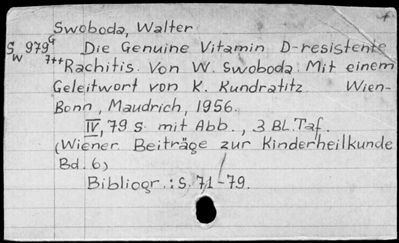 Swoboda, Walter
S 979 G Die Genuine Vitamin D-resistente
W 7++ Rachitis. Von W. Swoboda. Mit einem
Geleitwort von K. Kundratitz. Wien-
Bonn, Maudrich, 1956.
IV, 79 S. mit Abb., 3 Bl. Taf.
(Wiener Beiträge zur Kinderheilkunde
Bd. 6)
Bibliogr.: S. 71-79.